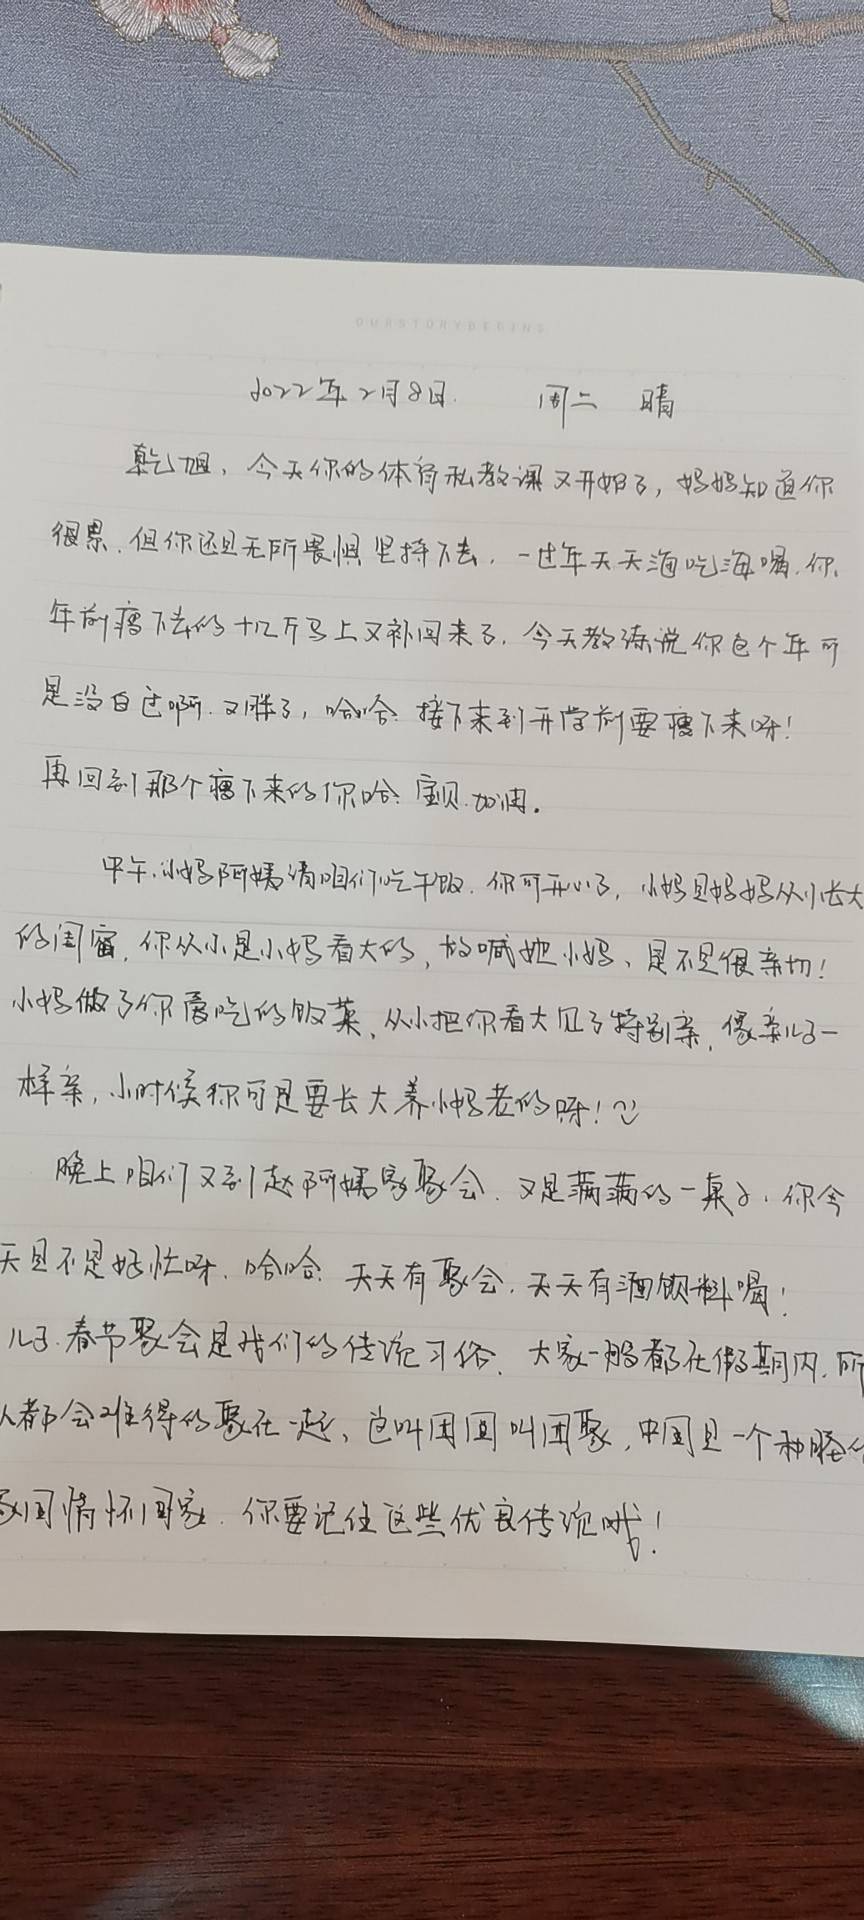 OURSTORYBEGINS
2022年2月8日. 周二 晴
乾旭，今天你的体育私教课又开始了，妈妈知道你
很累，但你还是无所畏惧坚持下去，一过年天天海吃海喝，你
年前瘦下去的十几斤马上又补回来了，今天教练说你这个年可
是没白过啊，又胖了，哈哈，接下来到开学前要瘦下来呀！
再回到那个瘦下来的你哈，宝贝，加油。
中午，小妈阿姨请咱们吃午饭，你可开心了，小妈是妈妈从小长大
的闺蜜，你从小是小妈看大的，故喊她小妈、是不是很亲切！
小妈做了你爱吃的饭菜，从小把你看大见了特别亲，像亲儿子一
样亲，小时候你可是要长大养小妈老的呀！
晚上咱们又到赵阿姨家聚会，又是满满的一桌子，你今
天是不是好忙呀，哈哈，天天有聚会，天天有酒饮料喝！
儿子，春节聚会是我们的传统习俗，大家一般都在假期内，所
人都会难得的聚在一起、这叫团圆叫团聚，中国是一个
家国情怀国家，你要记住这些优良传统哦！